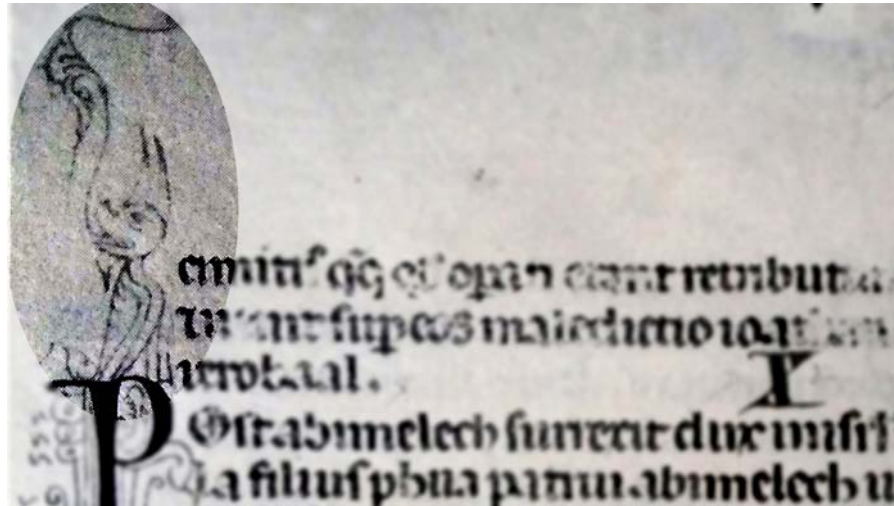 cimitis qq erant retributu
sup eos maledictio
ierobaal. X
Post abimelech surrexit dux in isrl
la filius phua patrui abimelech u